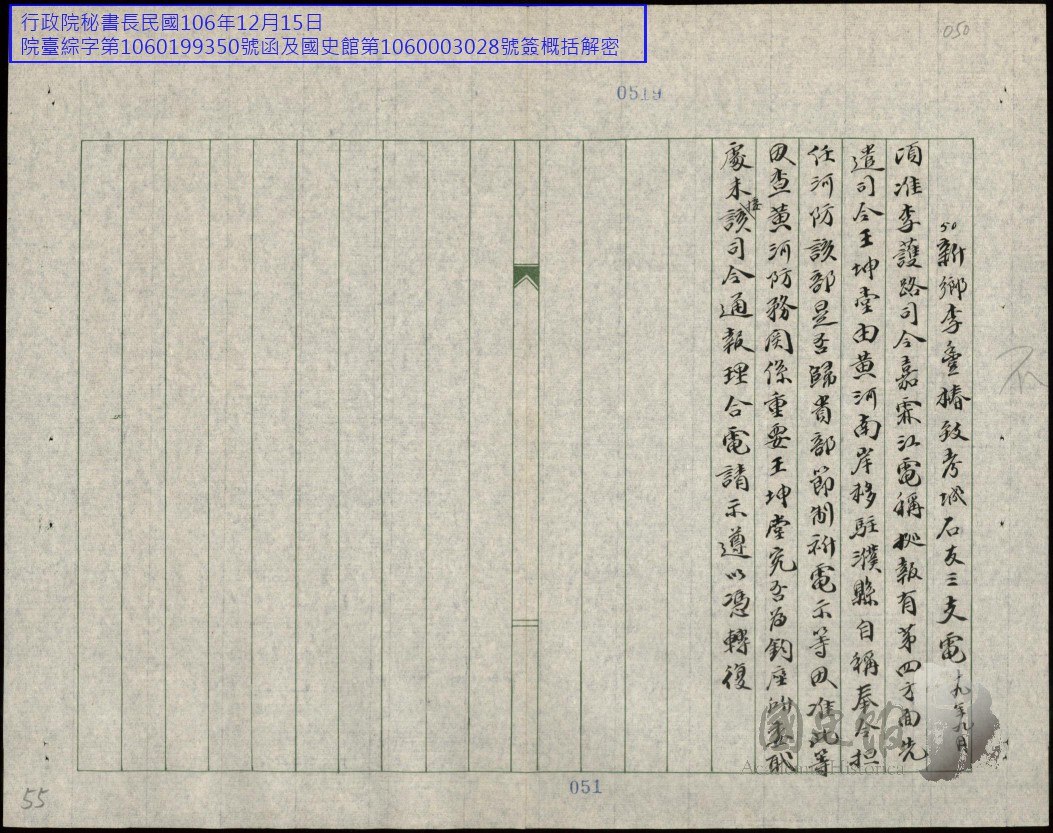 行政院秘書長民國106年12月15日
院臺綜字第1060199350號函及國史館第1060003028號簽概括解密
050
0519
50新鄉李壹椿致考城石友三支電十九年九月
頃准李護路司令嘉霖江電稱據報有第四方面先
遣司令王坤堂由黃河南岸移駐濮縣自稱奉令担
任河防該部是否歸貴部節制祈電示等因准此等
因查黃河防務関係重要王坤堂究否為鈞座所委職
處未接該司令通報理合電請示遵以憑轉復
國史館
Academia Historica
051
55